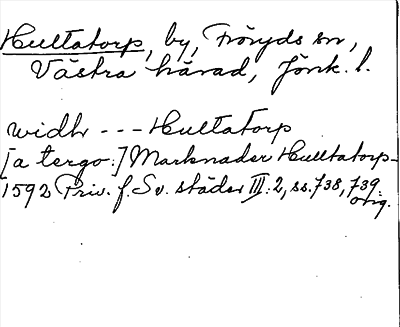 Hultatorp, by, Fröryds sn,
Västra härad, Jönk. l.
widh --- Hultatorp
[a tergo:] Marknader Hulltatorp-
1592 Priv. f. Sv. städer III: 2, ss. 738, 739.
orig.